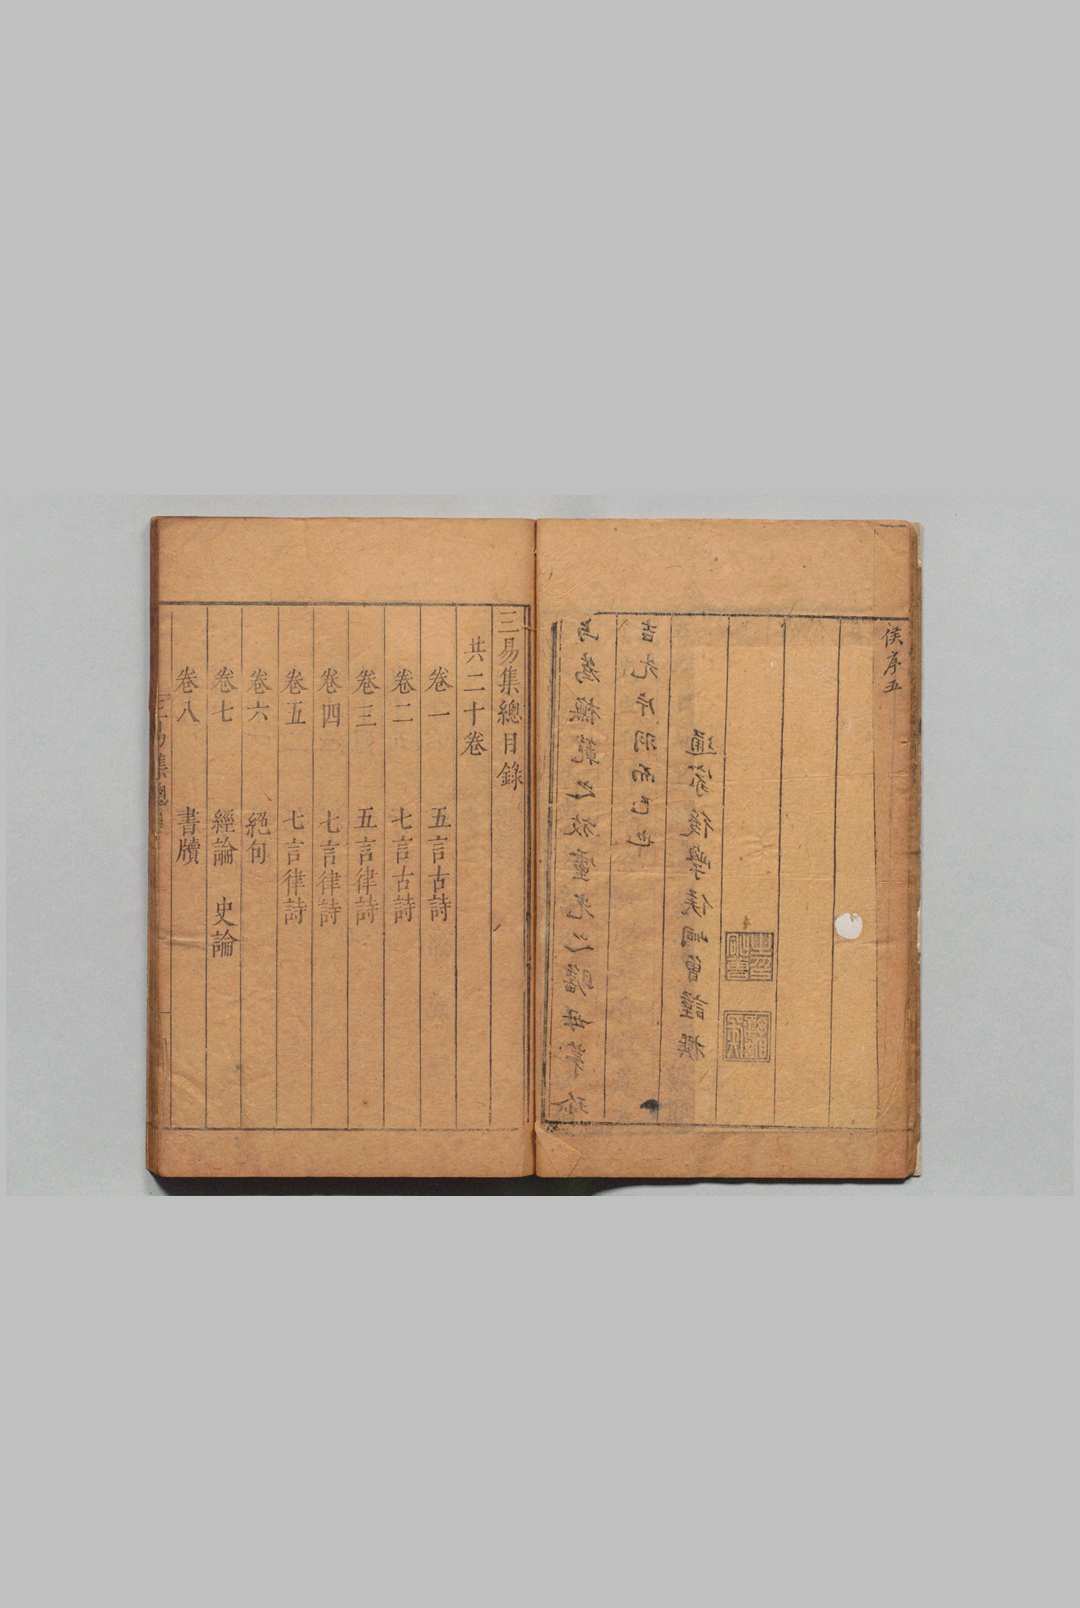 侯序五
吉光片羽而已也
通家後學侯峒曾謹撰
三易集總目錄
共二十卷
卷一 五言古詩
卷二 七言古詩
卷三 五言律詩
卷四 七言律詩
卷五 七言律詩
卷六 絕句
卷七 經論 史論
卷八 書牘
三易集總